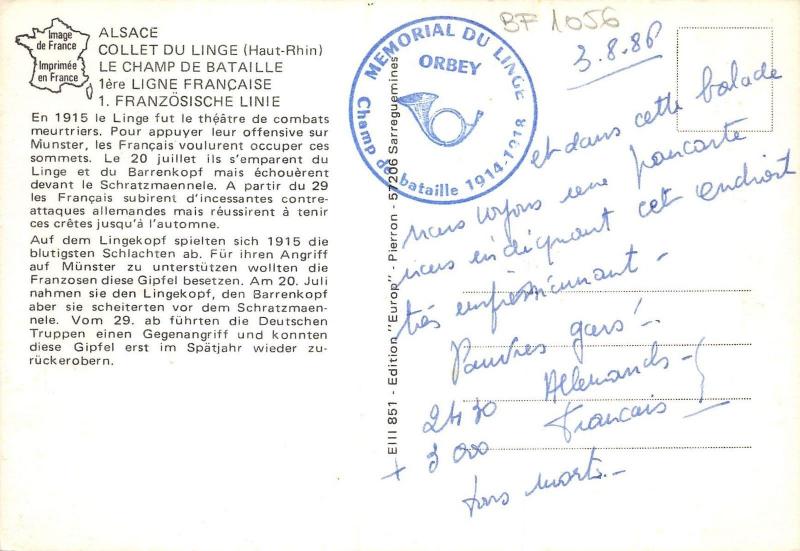 Image
de France
Imprimée
en France
ALSACE
COLLET DU LINGE (Haut-Rhin)
LE CHAMP DE BATAILLE
1ère LIGNE FRANÇAISE
1. FRANZÖSISCHE LINIE
En 1915 le Linge fut le théâtre de combats
meurtriers. Pour appuyer leur offensive sur
Munster, les Français voulurent occuper ces
sommets. Le 20 juillet ils s'emparent du
Linge et du Barrenkopf mais échouèrent
devant le Schratzmaennele. A partir du 29
les Français subirent d'incessantes contre-
attaques allemandes mais réussirent à tenir
ces crêtes jusqu'à l'automne.
Auf dem Lingekopf spielten sich 1915 die
blutigsten Schlachten ab. Für ihren Angriff
auf Münster zu unterstützen wollten die
Franzosen diese Gipfel besetzen. Am 20. Juli
nahmen sie den Lingekopf, den Barrenkopf
aber sie scheiterten vor dem Schratzmaen-
nele. Vom 29. ab führten die Deutschen
Truppen einen Gegenangriff und konnten
diese Gipfel erst im Spätjahr wieder zu-
rückerobern.
EIII 851 - Edition "Europ" - Pierron - 57206 Sarreguemines
MEMORIAL DU LINGE
ORBEY
Champ de bataille 1914-1918
BF 1056
3.8.86
et dans cette balade
nous voyons une pancarte
nous indiquant cet endroit
très impressionnant -
Pauvres gars !..
2430 Allemands -
+ 3 000 Français
tous morts. -